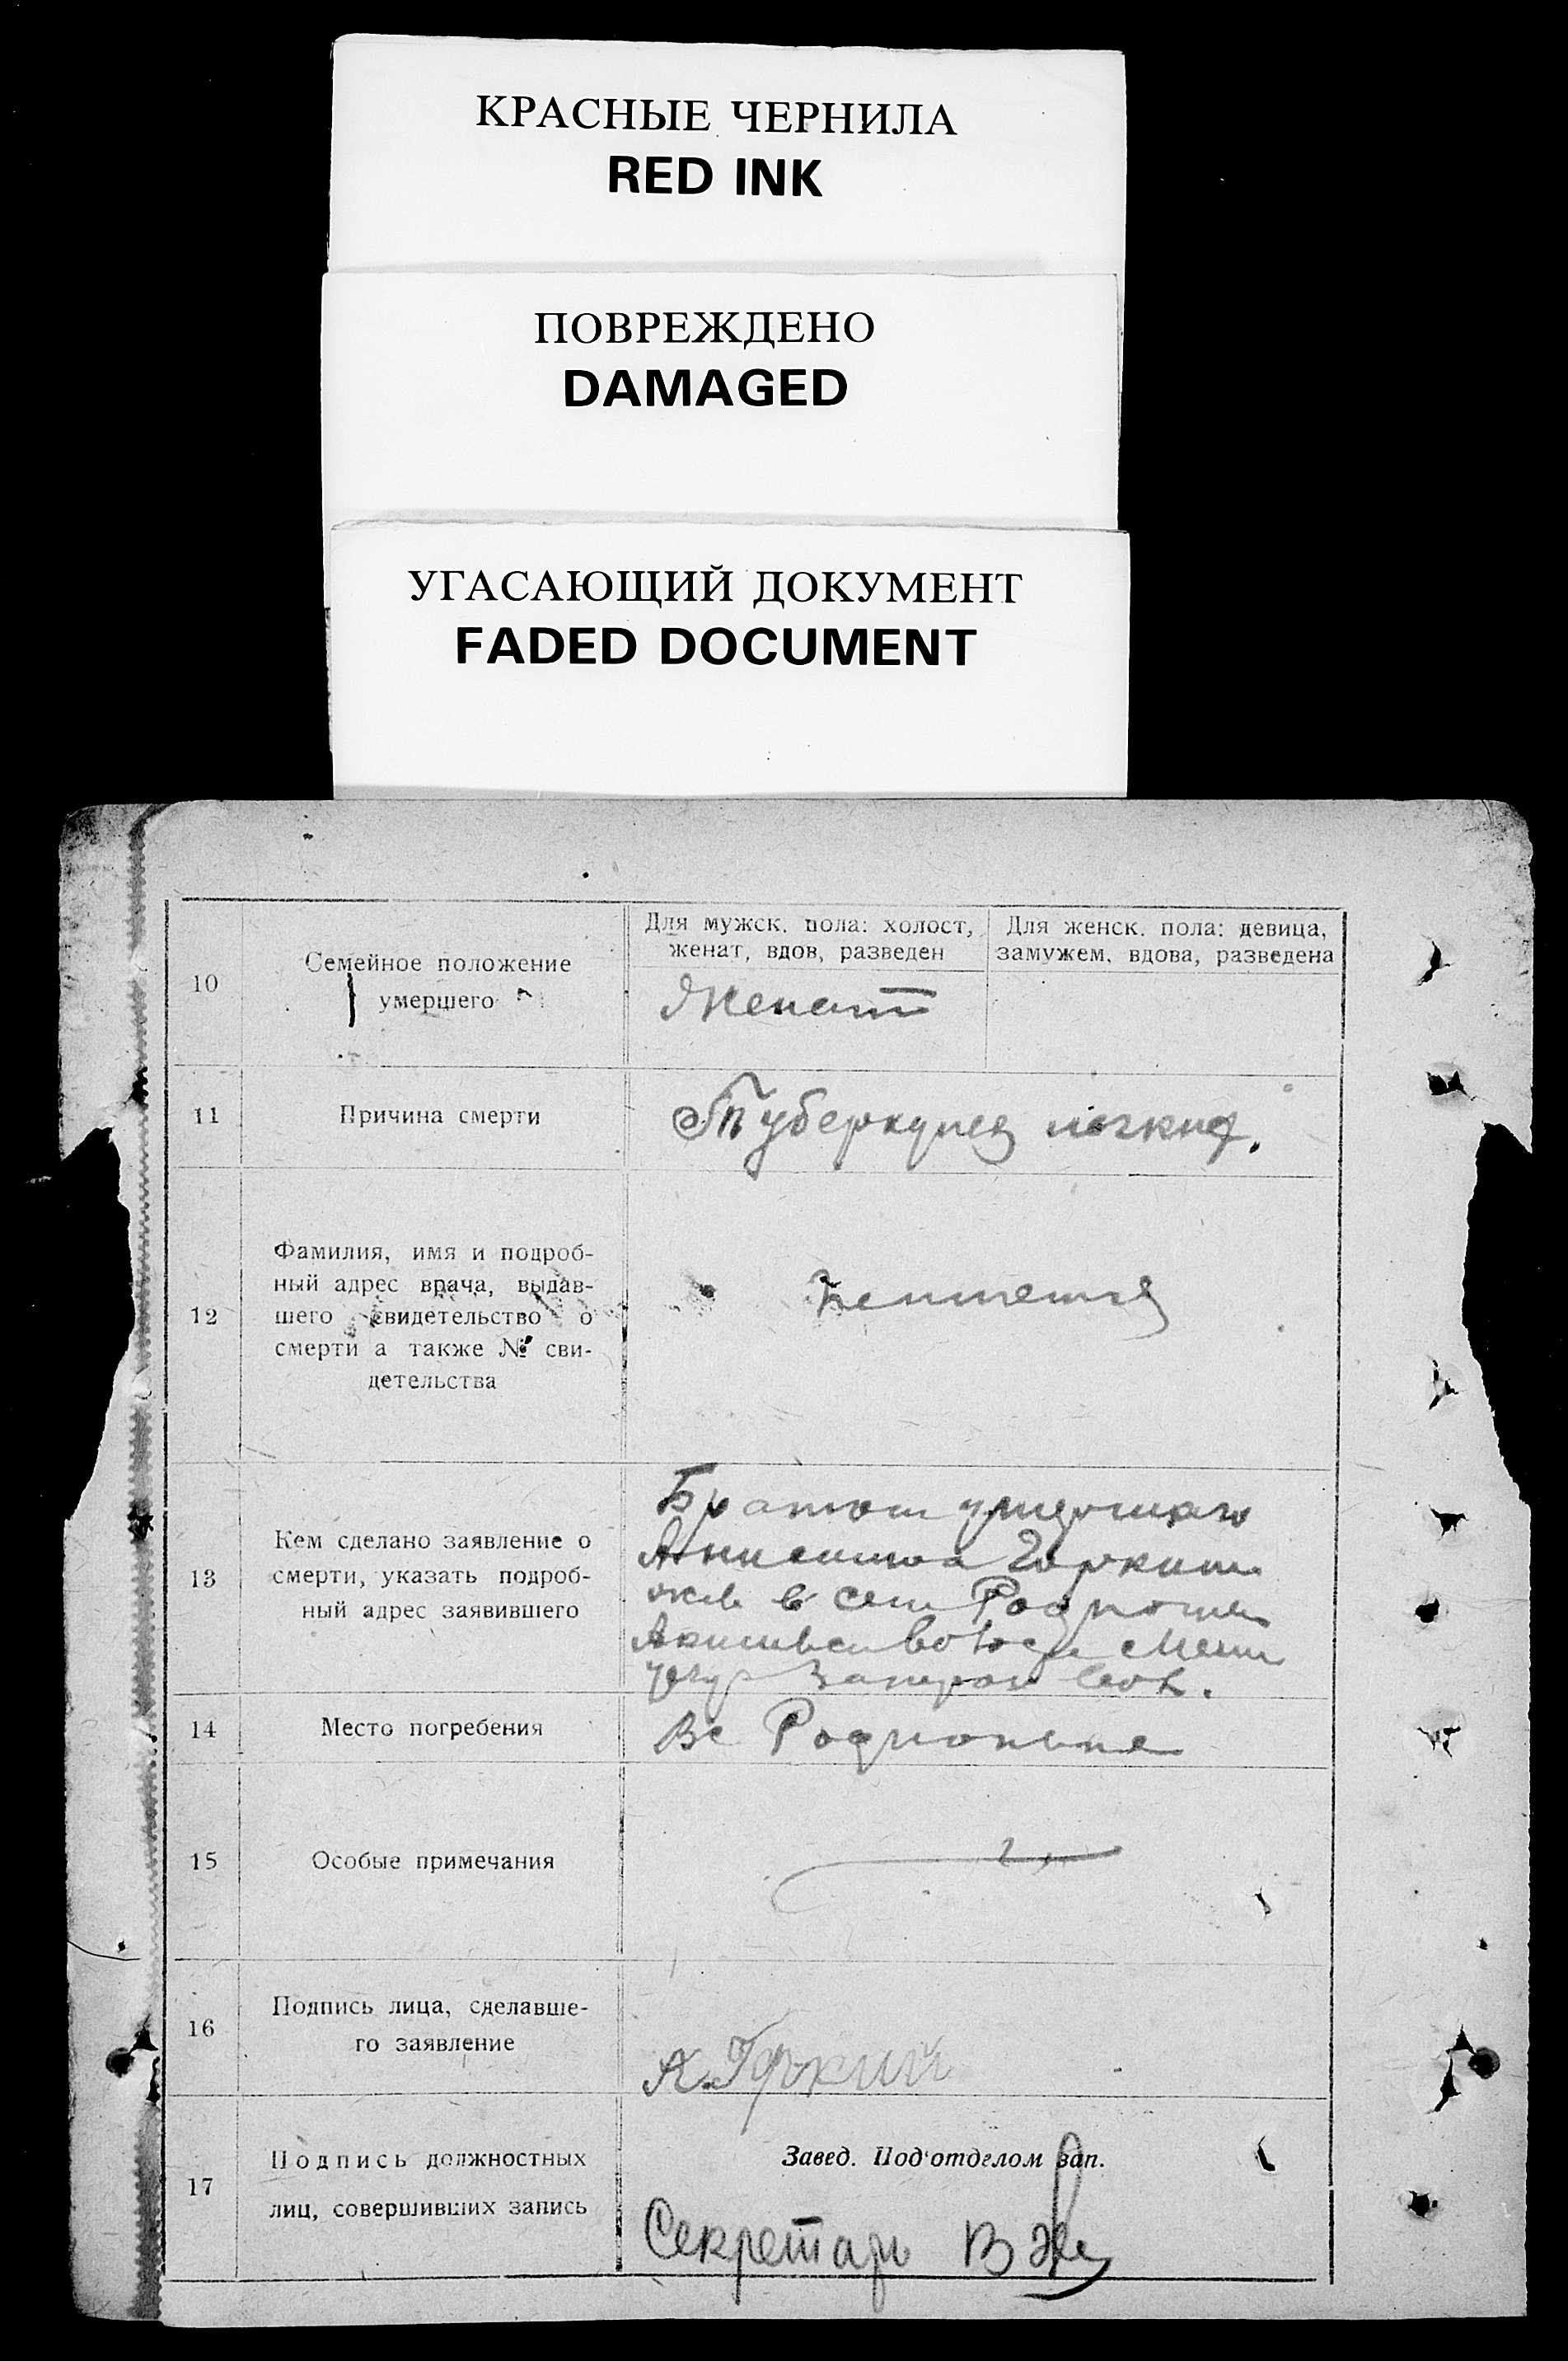 КРАСНЫЕ ЧЕРНИЛА
RED INK
ПОВРЕЖДЕНО
DAMAGED
УГАСАЮЩИЙ ДОКУМЕНТ
FADED DOCUMENT
10
Семейное положение
умершего
Для мужск. пола: холост,
женат, вдов, разведен
Для женск. пола: девица,
замужем, вдова, разведена
Женат
11
Причина смерти
Туберкулез легких.
12
Фамилия, имя и подроб-
ный адрес врача, выдав-
шего свидетельство о
смерти а также № сви-
детельства
13
Кем сделано заявление о
смерти, указать подроб-
ный адрес заявившего
Братом
Горким
в
14
Место погребения
Вс Родионовке
15
Особые примечания
16
Подпись лица, сделавше-
го заявление
А. Горкий
17
Подпись должностных
лиц, совершивших запись
Завед. Под'отделом зап.
Секретарь В